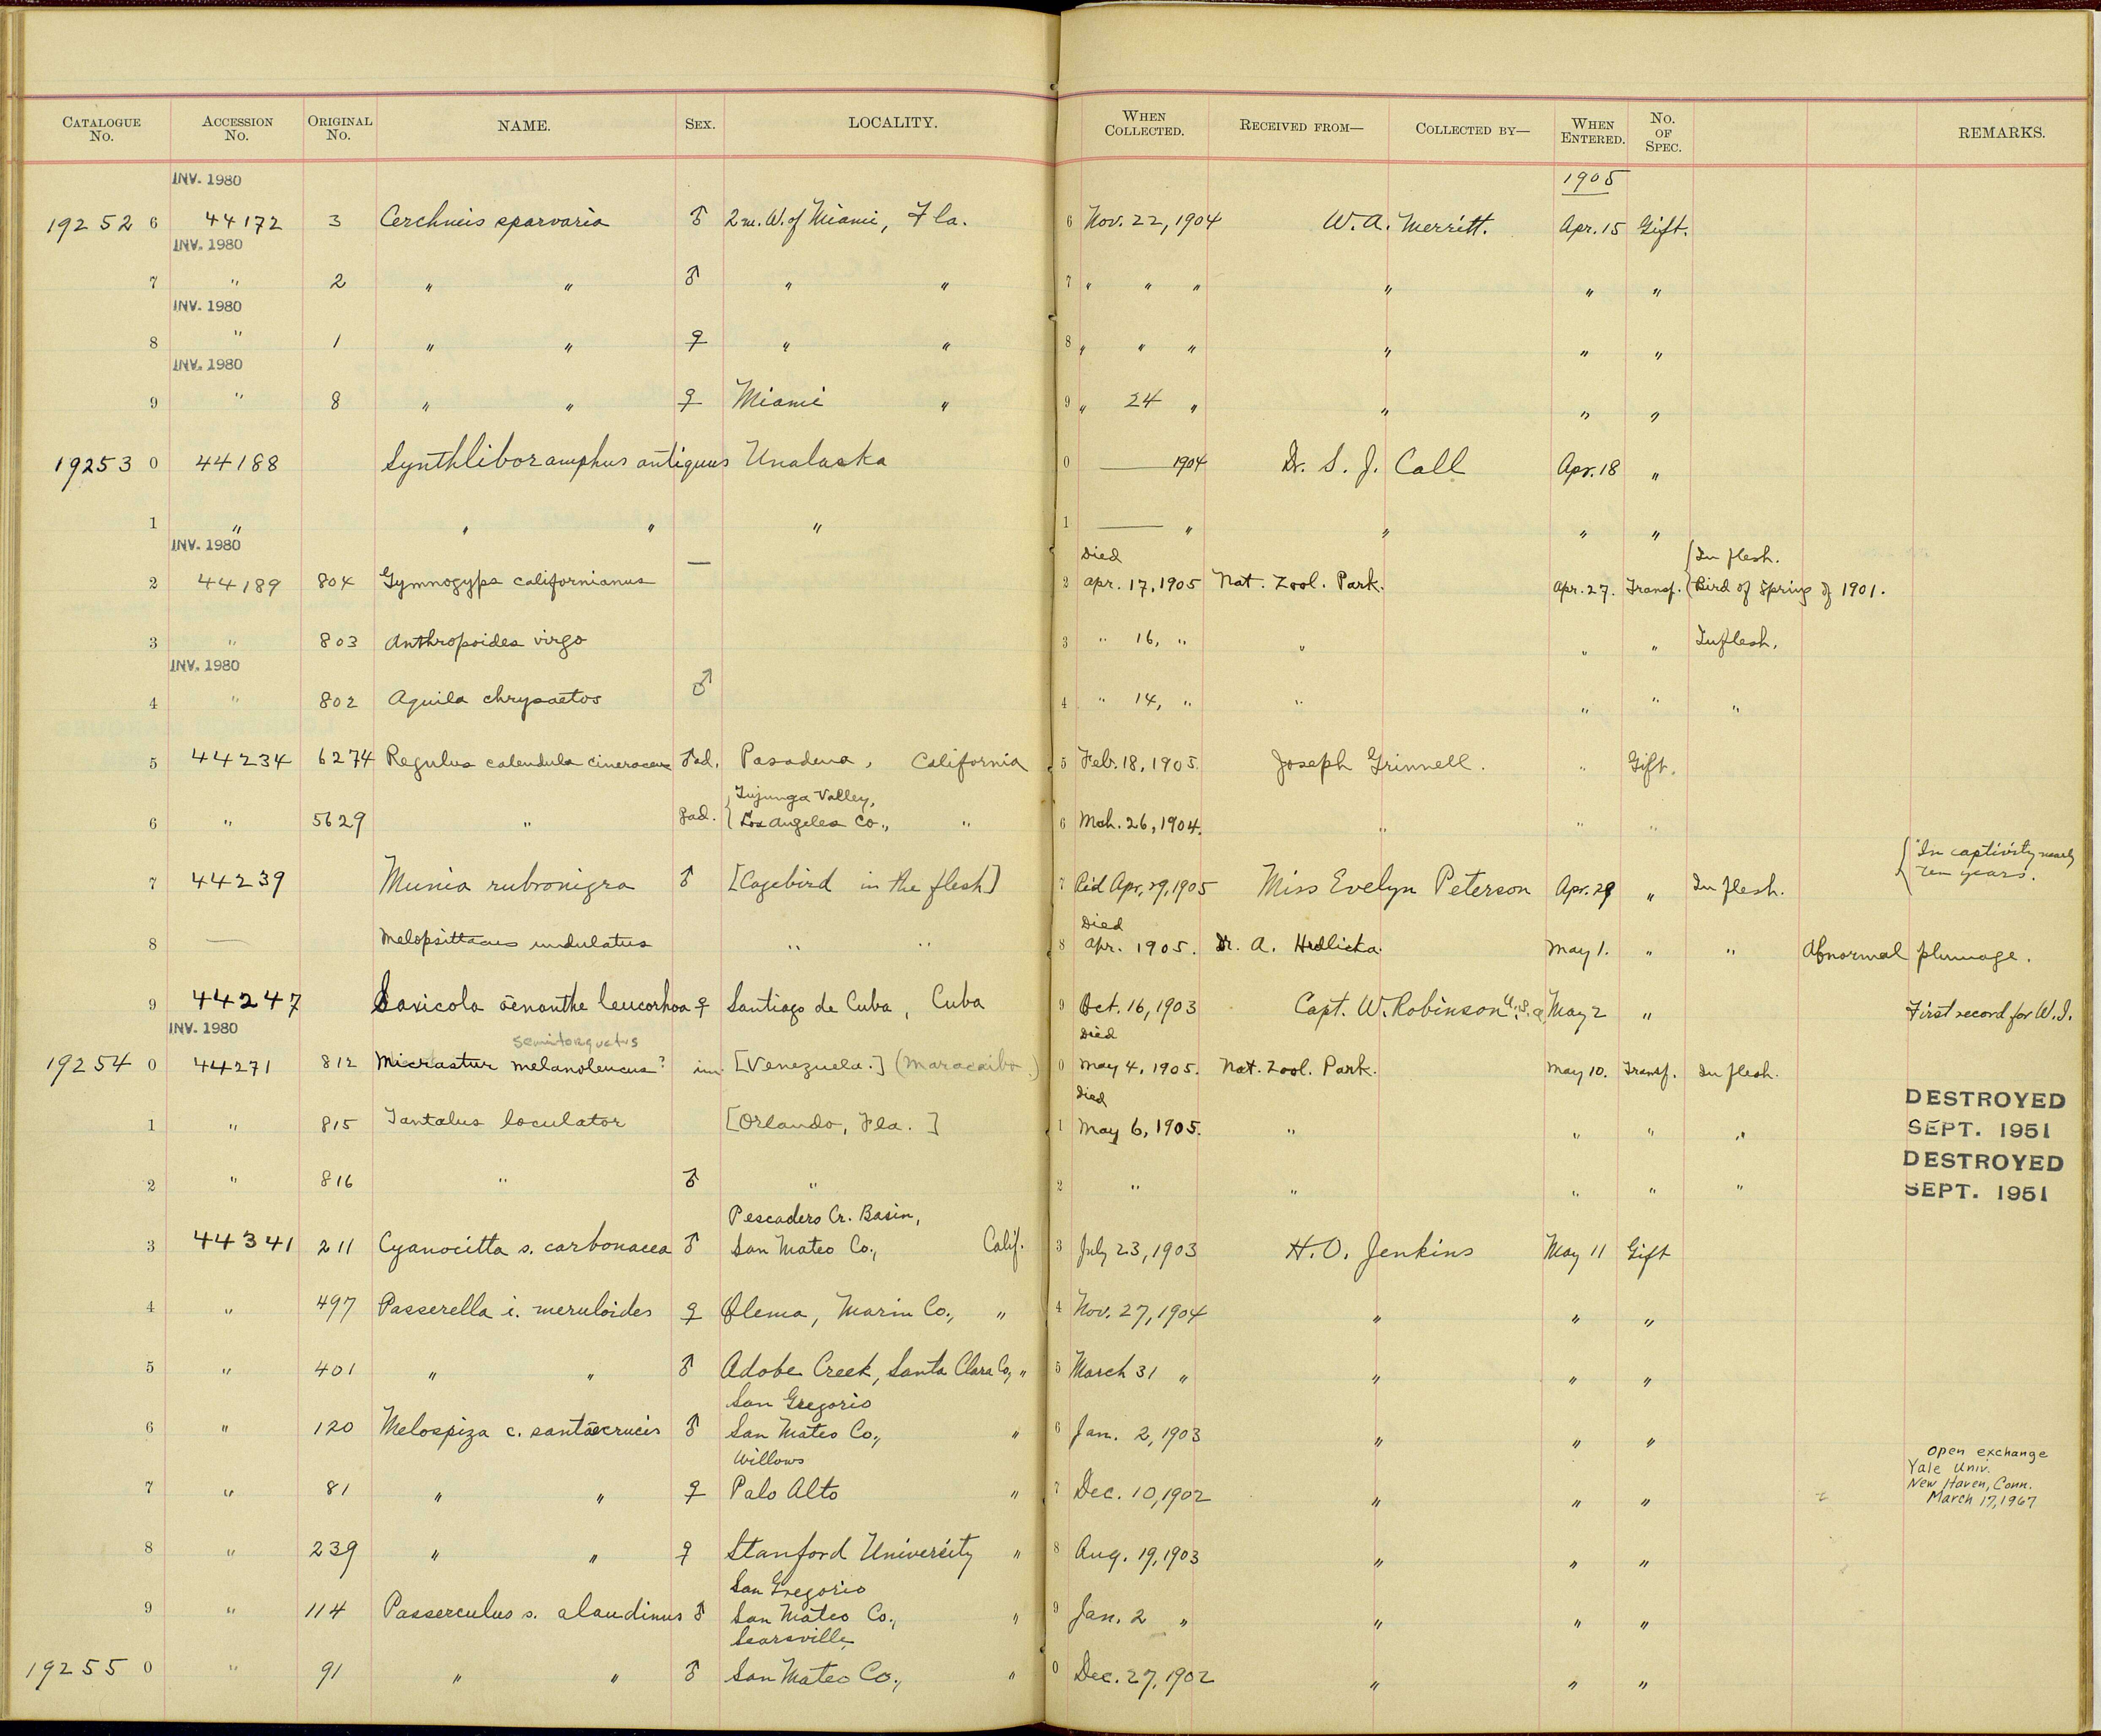 CATALOGUE No. ACCESSION No. ORIGINAL No. NAME. SEX. LOCALITY. WHEN COLLECTED. RECEIVED FROM— COLLECTED BY— WHEN ENTERED. No. OF SPEC. REMARKS.
INV. 1980 1905
19252 6 44172 3 Cerchneis sparvaria ♂ 2 m. W. of Miami, Fla. 6 Nov. 22, 1904 W. A. Merritt. Apr. 15 Gift.
INV. 1980
7 " 2 " " ♂ " " 7 " " " " " "
INV. 1980
8 " 1 " " ♀ " " 8 " " " " " "
INV. 1980
9 " 8 " " ♀ Miami " 9 " 24 " " " "
19253 0 44188 Synthliboramphus antiquus Unalaska 0 — 1904 Dr. S. J. Call Apr. 18 "
1 " " " " 1 — " " " "
INV. 1980 Died { In flesh.
2 44189 804 Gymnogyps californianus — 2 Apr. 17, 1905 Nat. Zool. Park. Apr. 27. Transf. { Bird of Spring of 1901.
3 " 803 Anthropoides virgo 3 " 16, " " " " In flesh.
INV. 1980
4 " 802 Aquila chrysaetos ♂ 4 " 14, " " " " "
5 44234 6274 Regulus calendula cineraceus ♂ ad. Pasadena, California 5 Feb. 18, 1905. Joseph Grinnell. " Gift.
{ Tujunga Valley,
6 " 5629 " ♀ ad. { Los Angeles Co., " 6 Mch. 26, 1904. " " "
{ "In captivity nearly
7 44239 Munia rubronigra ♂ [Cagebird in the flesh] 7 Rid Apr. 29, 1905 Miss Evelyn Peterson Apr. 29 " In flesh. ten years.
Died
8 — Melopsittacus undulatus " " 8 Apr. 1905. Dr. A. Hrdlicka. May 1. " " Abnormal plumage.
9 44247 Saxicola oenanthe leucorhoa ♀ Santiago de Cuba, Cuba 9 Oct. 16, 1903 Capt. W. Robinson U.S.A. May 2 " First record for W.I.
INV. 1980 semitorquatus Died
19254 0 44271 812 Micrastur melanoleucus? im. [Venezuela.] (Maracaibo.) 0 May 4, 1905. Nat. Zool. Park. May 10. Transf. In flesh.
Died DESTROYED
1 " 815 Tantalus loculator [Orlando, Fla.] 1 May 6, 1905. " " " " SEPT. 1951
DESTROYED
2 " 816 " ♂ " 2 " " " " " SEPT. 1951
Pescadero Cr. Basin,
3 44341 211 Cyanocitta s. carbonacea ♂ San Mateo Co., Calif. 3 July 23, 1903 H. O. Jenkins May 11 Gift
4 " 497 Passerella i. meruloides ♀ Olema, Marin Co., " 4 Nov. 27, 1904 " " "
5 " 401 " " ♂ Adobe Creek, Santa Clara Co, " 5 March 31 " " " "
San Gregorio
6 " 120 Melospiza c. santaecrucis ♂ San Mateo Co., " 6 Jan. 2, 1903 " " "
Willows Open exchange
Yale Univ.
7 " 81 " " ♀ Palo Alto " 7 Dec. 10, 1902 " " " New Haven, Conn.
March 17, 1967
8 " 239 " " ♀ Stanford University " 8 Aug. 19, 1903 " " "
San Gregorio
9 " 114 Passerculus s. alaudinus ♂ San Mateo Co., " 9 Jan. 2 " " " "
Searsville,
19255 0 " 91 " " ♂ San Mateo Co., " 0 Dec. 27, 1902 " " "